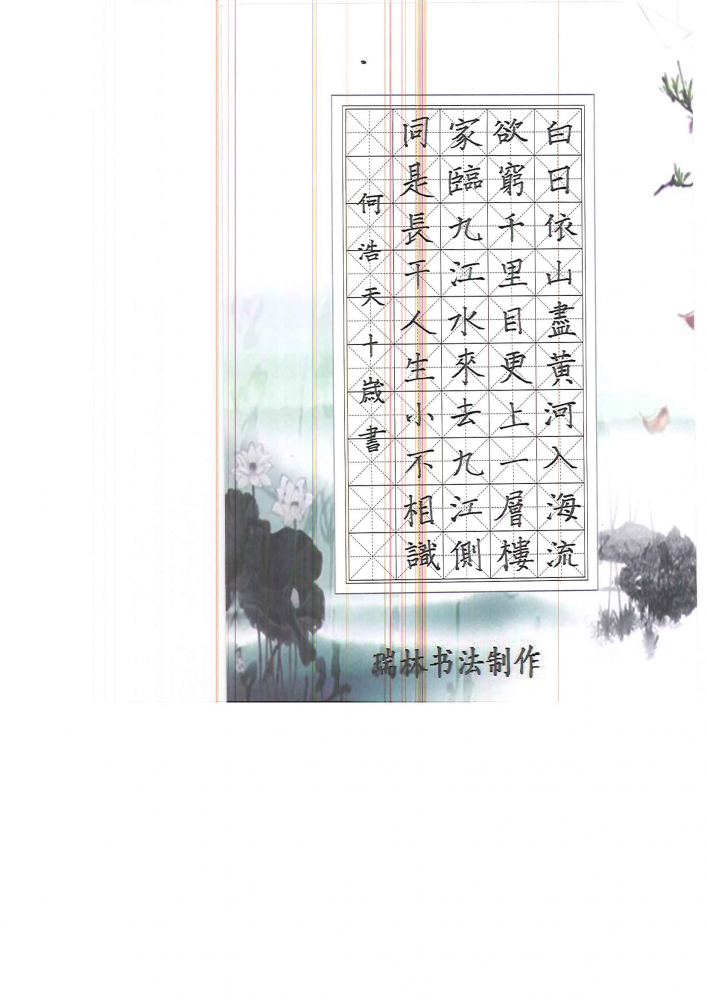 白日依山盡黃河入海流
欲窮千里目更上一層樓
家臨九江水來去九江側
同是長干人生小不相識
何浩天十歲書
瑞林书法制作